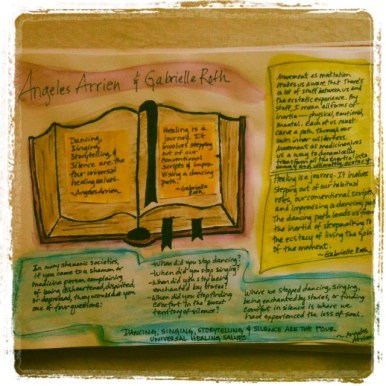 Angeles Arrien & Gabrielle Roth
Dancing,
Singing,
Storytelling, &
Silence are the
four universal
healing salves.
~Angeles Arrien
Healing is a
journey. It
involves stepping
out of our
conventional
scripts & impro-
vising a dancing
path.
~Gabrielle
Roth
Movement as meditation
makes us aware that there's
a lot of stuff between us and
the ecstatic experience. By
stuff I mean all forms of
inertia — physical, emotional,
mental. Each of us must
carve a path through our
own inner wilderness.
us a way to dynamically
Healing is a journey. It involves
stepping out of our habitual
roles, our conventional scripts,
and improvising a dancing path.
The dancing path leads us from
the inertia of sleepwalking to
the ecstasy of living the spirit
of the moment.
~Gabrielle Roth
In many shamanic societies,
if you came to a shaman or
medicine person complaining
of being disheartened, dispirited,
or depressed, they would ask you
one of four questions:
~When did you stop dancing?
~When did you stop singing?
~When did you stop being
enchanted by stories?
~When did you stop finding
comfort in the sweet
territory of silence?
Where we stopped dancing, singing,
being enchanted by stories, or finding
comfort in silence is where we
have experienced the loss of soul.
~Angeles
Arrien
DANCING, SINGING, STORYTELLING & SILENCE ARE THE FOUR
UNIVERSAL HEALING SALVES